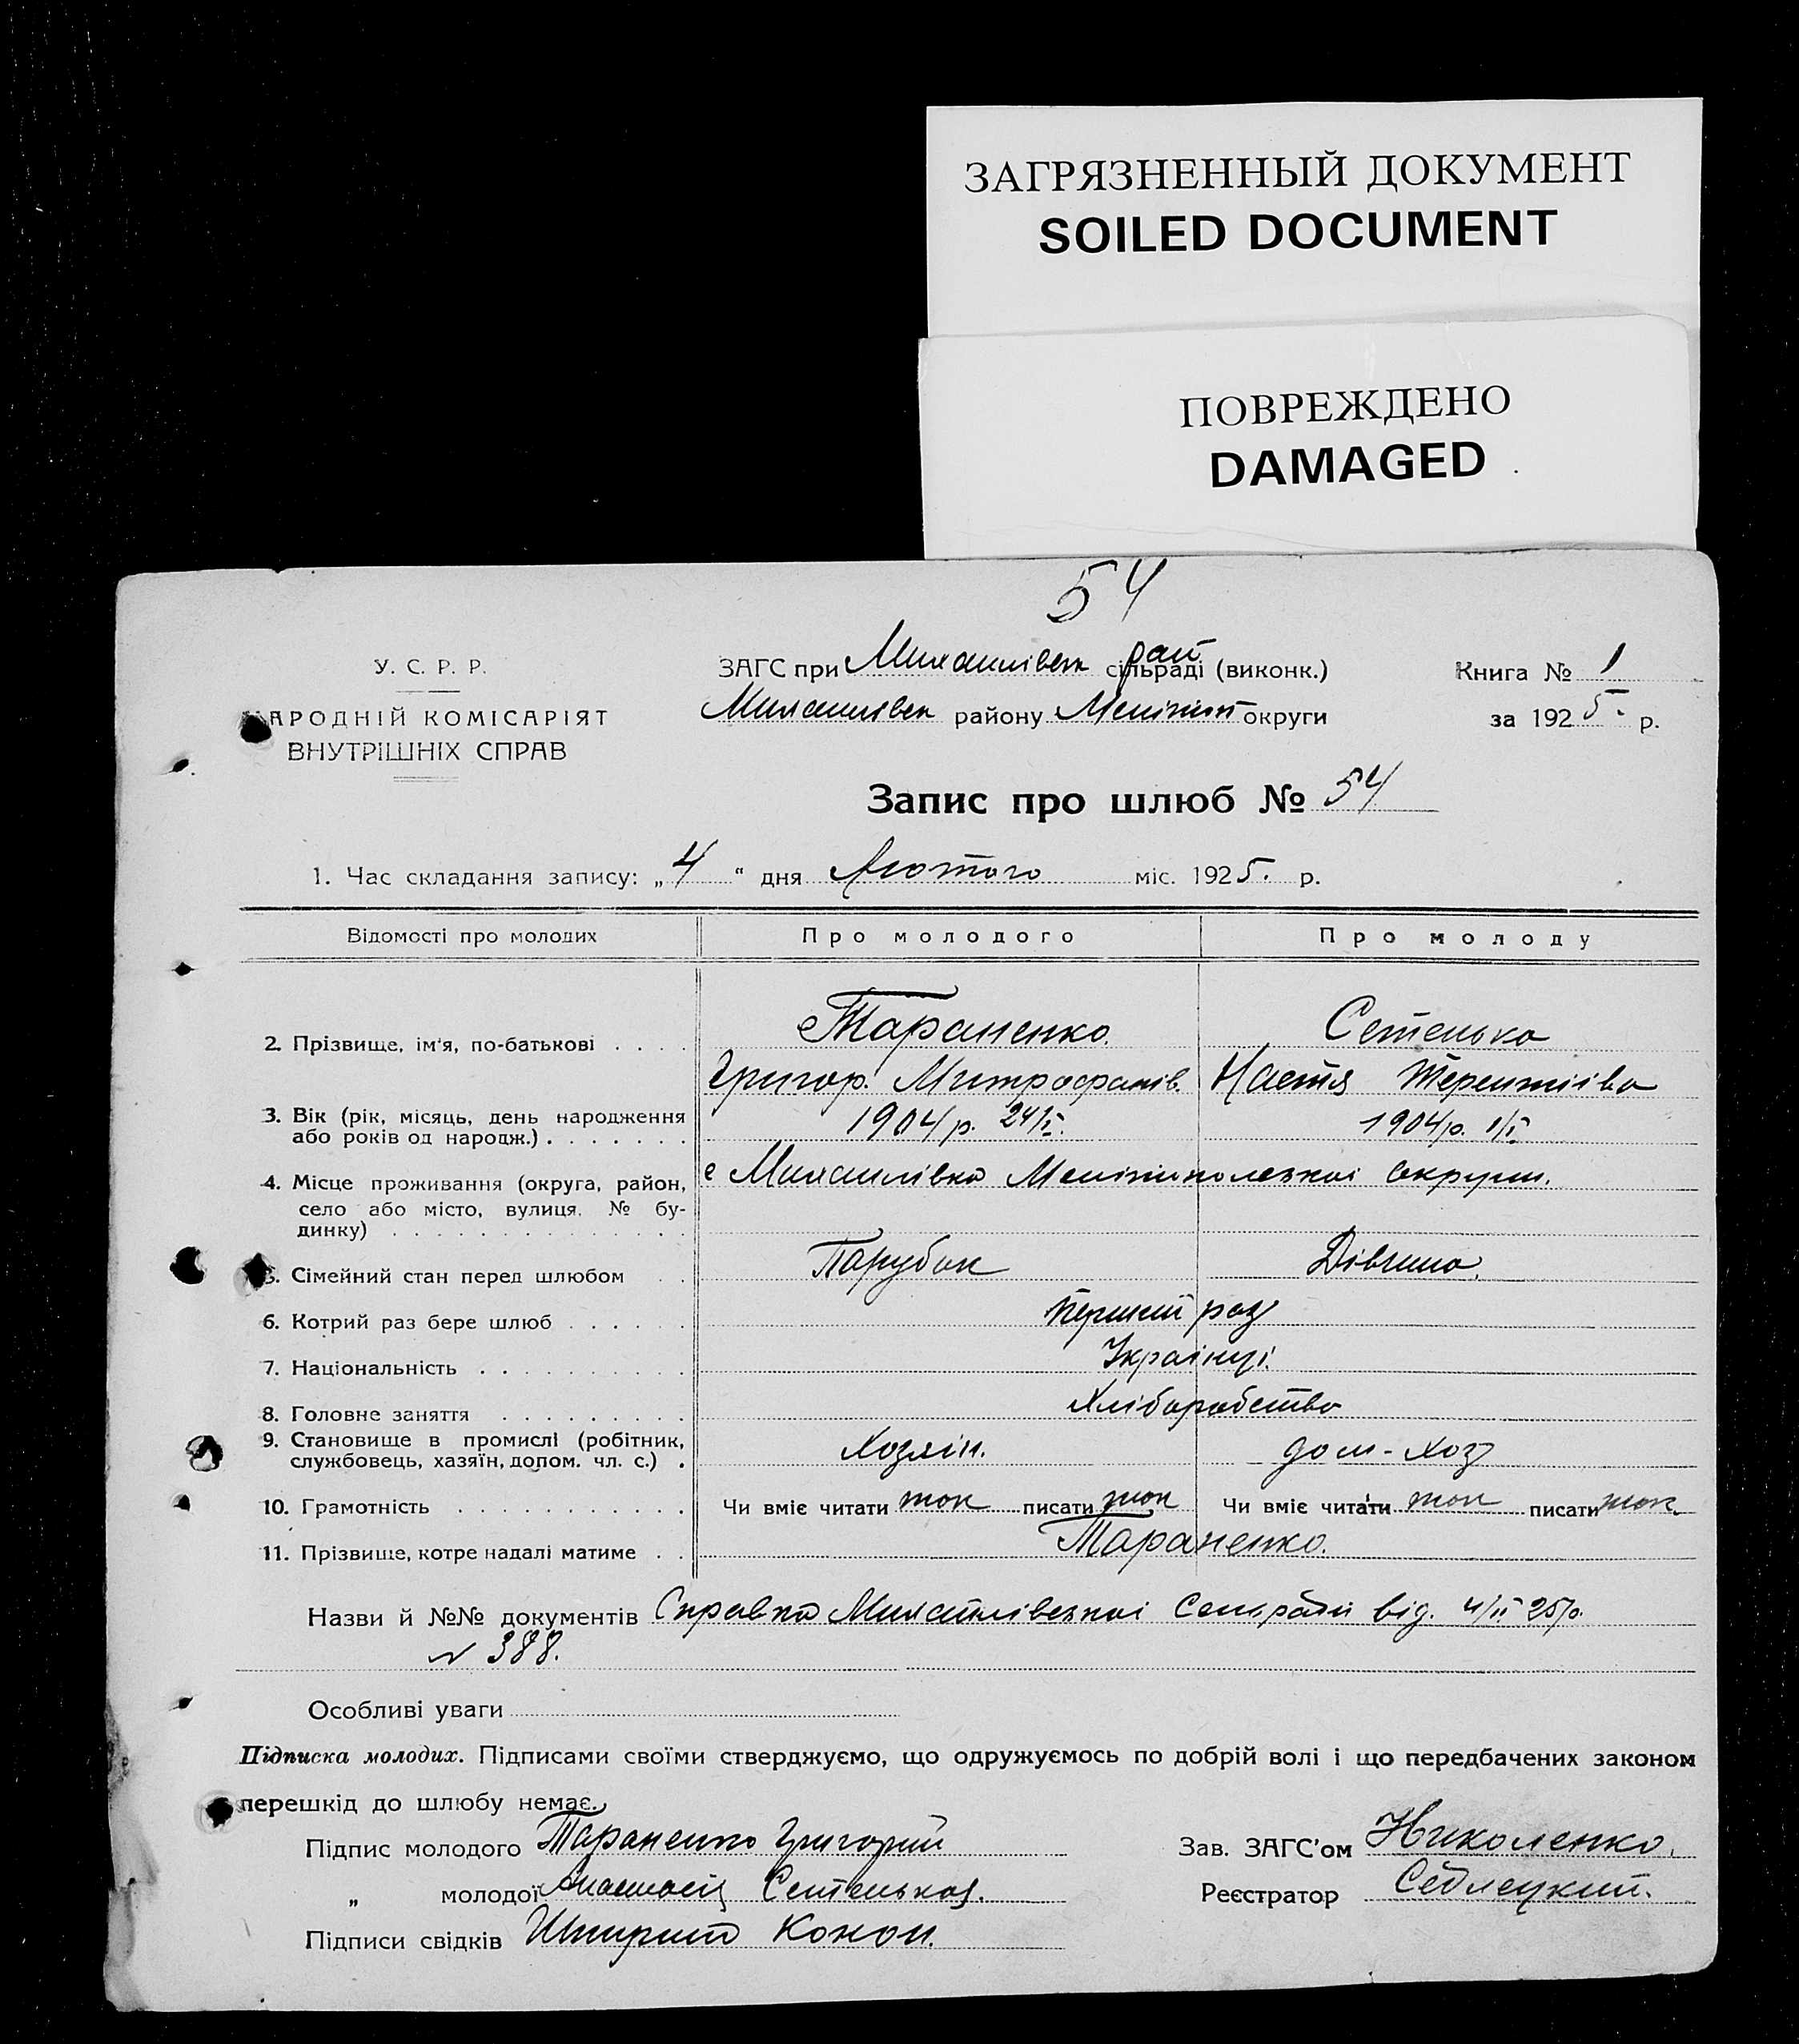 ЗАГРЯЗНЕННЫЙ ДОКУМЕНТ
SOILED DOCUMENT
ПОВРЕЖДЕНО
DAMAGED
54
У. С. Р. Р.
АРОДНІЙ КОМІСАРІЯТ
ВНУТРІШНІХ СПРАВ
ЗАГС при Михайлівськ сільраді рай (виконк.)
Михайлівськ району Меліτοπ округи
Книга № 1
за 1925. р.
Запис про шлюб № 54
1. Час складання запису: „4“ дня Лютого міс. 1925. р.
Відомості про молодих Про молодого Про молоду
2. Прізвище, ім'я, по-батькові . . . . Тараненко. Сетенька
Григор. Митрофанів. Настя Терентіїва
3. Вік (рік, місяць, день народження
або років од народж.) . . . . . . . 1904 р. 24/I. 1904 р. 1/I
4. Місце проживання (округа, район,
село або місто, вулиця, № бу-
динку) . . . . . . . . . . . . . . .
с Михайлівка Мелітопольської округи.
5. Сімейний стан перед шлюбом . . Парубок Дівчина.
6. Котрий раз бере шлюб . . . . . . Перший раз
7. Національність . . . . . . . . . . Українці
8. Головне заняття . . . . . . . . . Хліборобство
9. Становище в промислі (робітник,
службовець, хазяїн, допом. чл. с.) . Хозяін. дом-хоз
10. Грамотність . . . . . . . . . . . . Чи вміє читати так писати так Чи вміє читати так писати так
11. Прізвище, котре надалі матиме . . Тараненко.
Назви й №№ документів Справка Михайлівської Сельради від. 4/II 25 р.
№ 388.
Особливі уваги
Підписка молодих. Підписами своїми стверджуємо, що одружуємось по добрій волі і що передбачених законом
перешкід до шлюбу немає.
Підпис молодого Тараненко Григорий
„ молодої Анастасія Сетенькоя.
Підписи свідків Конон.
Зав. ЗАГС'ом Николенко.
Реєстратор Седлецкий.